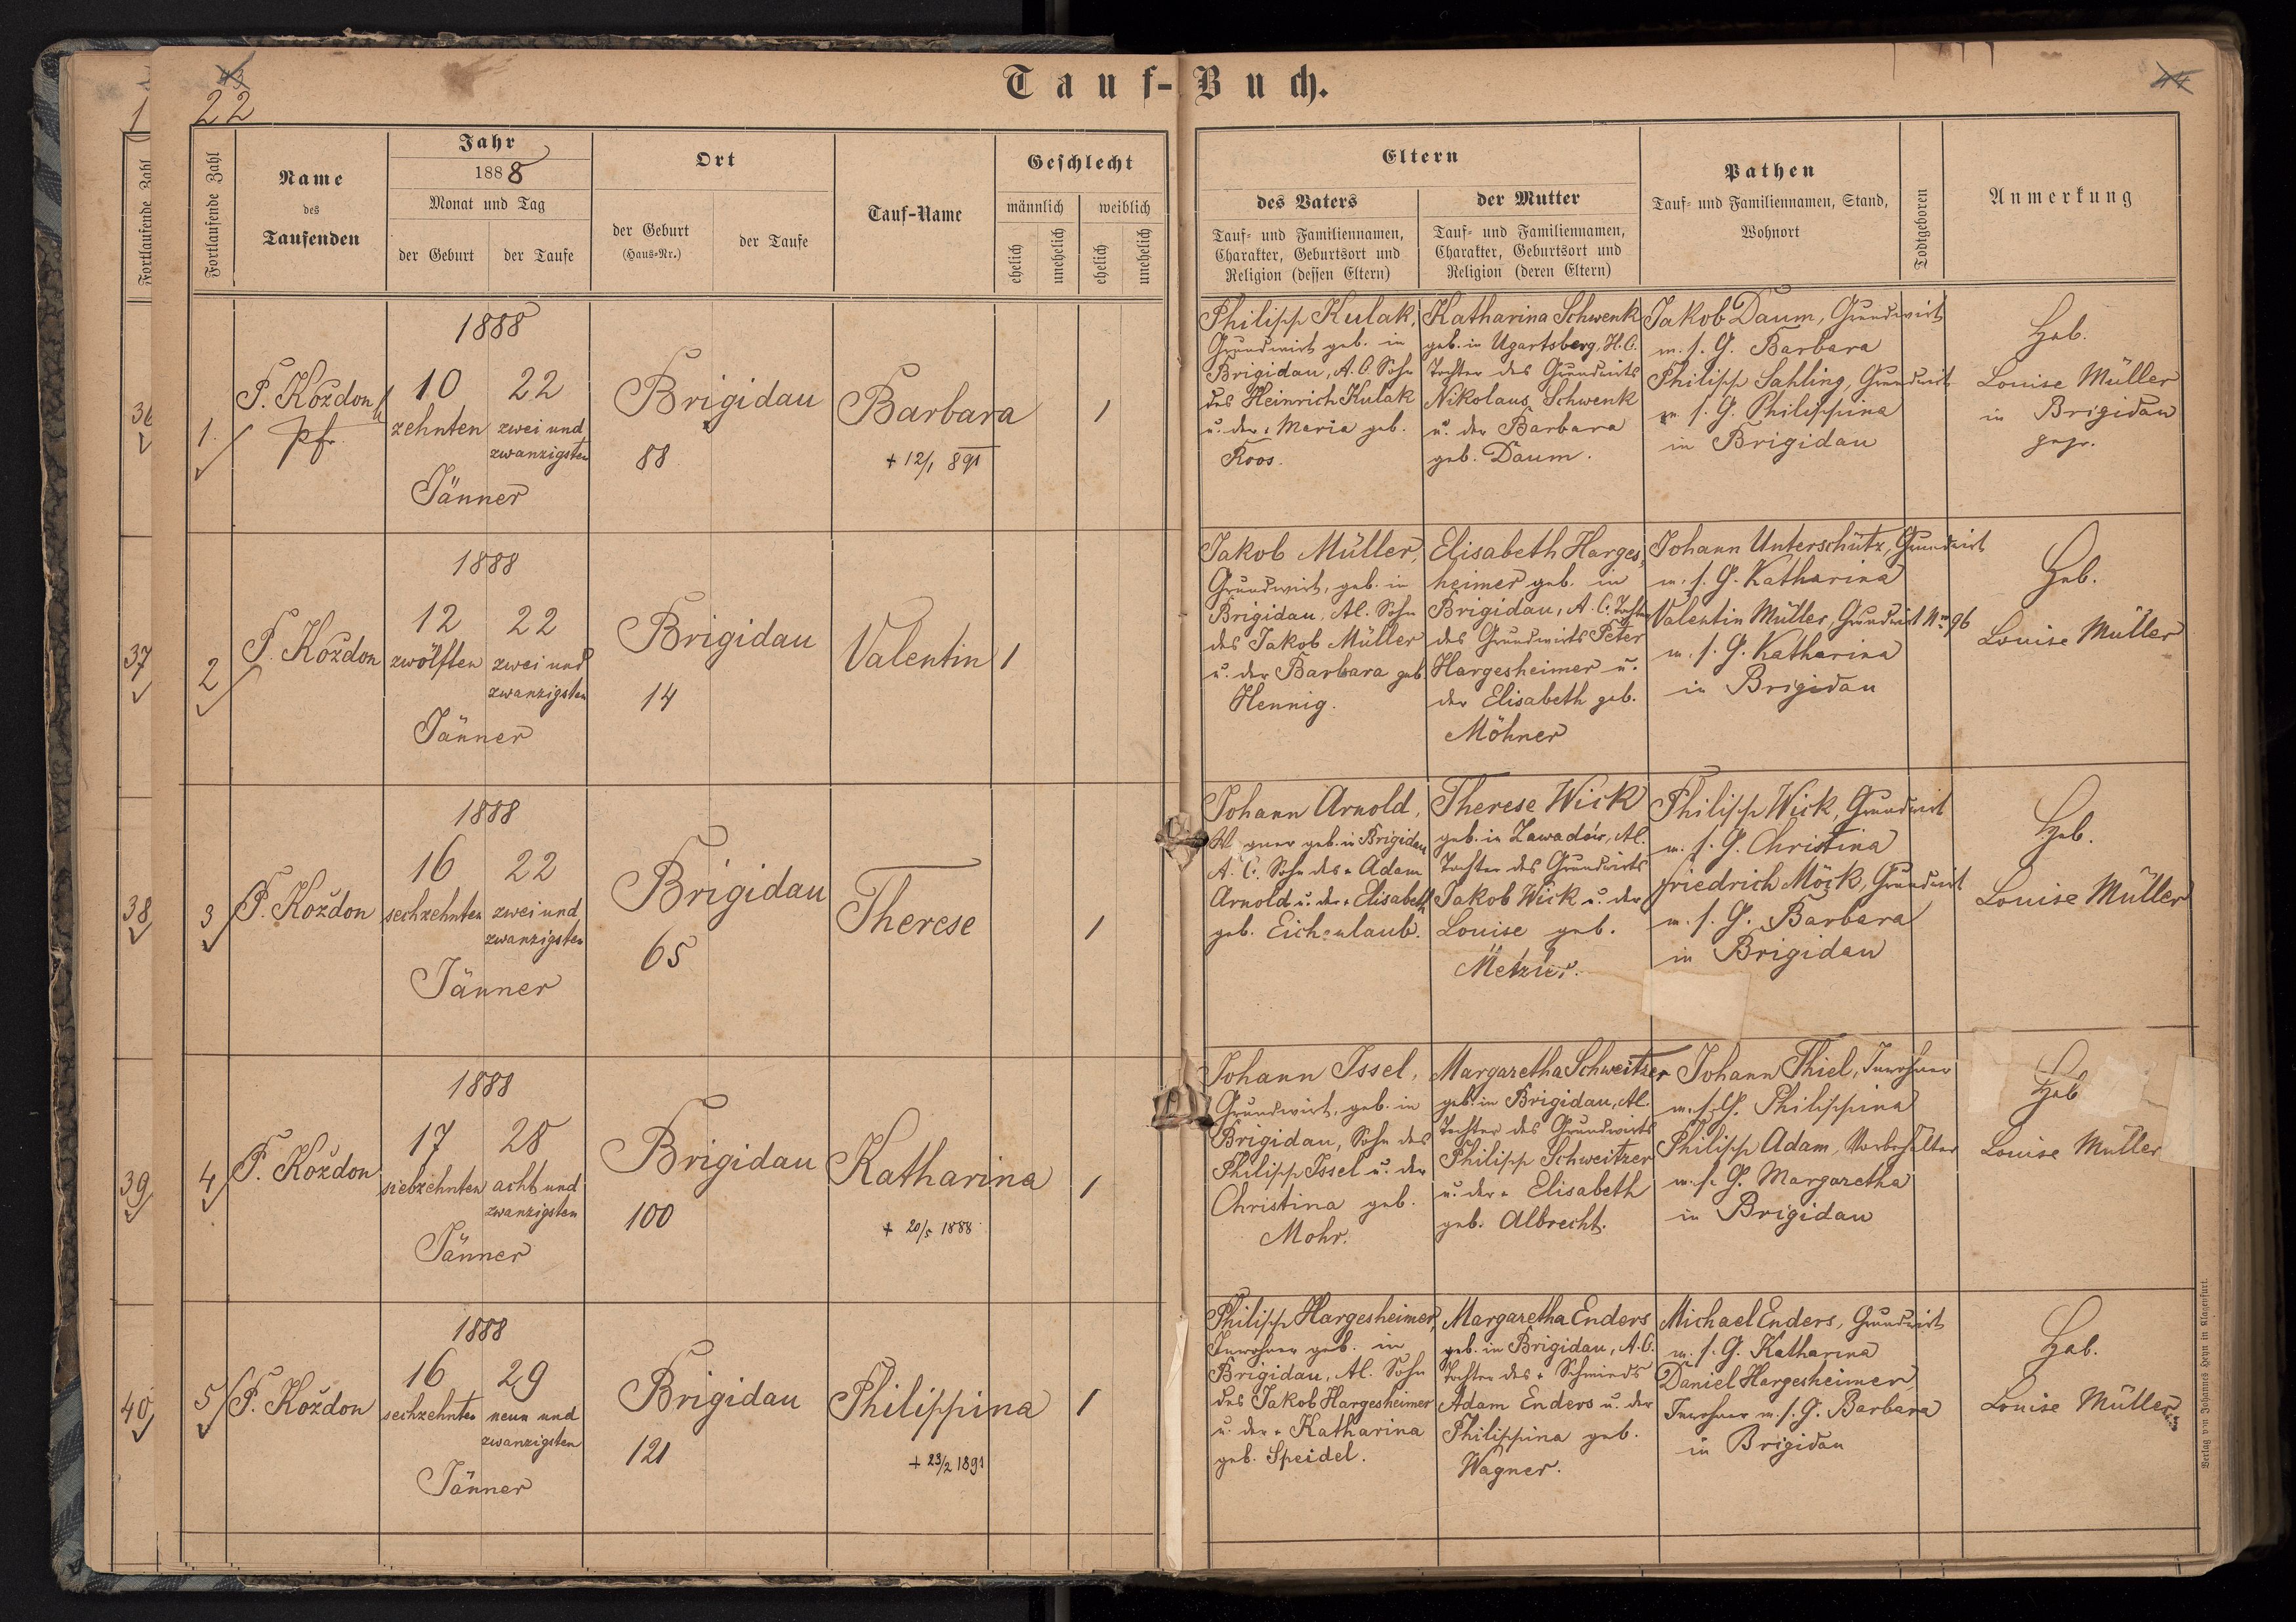 43
22
Tauf-Buch.
44
1
Fortlaufende Zahl
Fortlaufende Zahl
Name
des
Taufenden
Jahr
1888
Monat und Tag
der Geburt
der Taufe
Ort
der Geburt
(Haus-Nr.)
der Taufe
Tauf-Name
Geschlecht
männlich
weiblich
ehelich
unehelich
ehelich
unehelich
Eltern
des Vaters
Tauf- und Familiennamen,
Charakter, Geburtsort und
Religion (dessen Eltern)
der Mutter
Tauf- und Familiennamen,
Charakter, Geburtsort und
Religion (deren Eltern)
Pathen
Tauf- und Familiennamen, Stand,
Wohnort
Todtgeboren
Anmerkung
36
1.
F. Koždon
pfr.
1888
10
zehnten
22
zwei und
zwanzigsten
Jänner
Brigidau
88
Barbara
+ 12/1 891
1
Philipp Kulak,
Grundwirt geb. in
Brigidau, A.C. Sohn
des Heinrich Kulak
u. der + Maria geb.
Roos.
Katharina Schwenk
geb. in Ugartsberg, H.C.
Tochter des Grundwirts
Nikolaus Schwenk
u. der Barbara
geb. Daum.
Jakob Daum, Grundwirt
m. s. G. Barbara
Philipp Sahling, Grundwirt
m. s. G. Philippina
in Brigidau
Heb.
Louise Müller
in Brigidau
gepr.
37
2
F. Koždon
1888
12
zwölften
22
zwei und
zwanzigsten
Jänner
Brigidau
14
Valentin
1
Jakob Müller,
Grundwirt, geb. in
Brigidau, AC. Sohn
des Jakob Müller
u. der Barbara geb.
Hennig.
Elisabeth Harges
heimer geb. in
Brigidau, A.C. Tochter
des Grundwirts Peter
Hargesheimer u.
der Elisabeth geb.
Möhner
Johann Unterschütz, Grundwirt
m. s. G. Katharina
Valentin Müller, Grundwirt Nr 96
m. s. G. Katharina
in Brigidau
Heb.
Louise Müller
38
3
F. Koždon
1888
16
sechzehnten
22
zwei und
zwanzigsten
Jänner
Brigidau
65
Therese
1
Johann Arnold,
geb. in Brigidau
A.C. Sohn des + Adam
Arnold u. der + Elisabeth
geb. Eichenlaub.
Therese Wick
geb. in Zawadów, AC.
Tochter des Grundwirts
Jakob Wick u. der
Louise geb.
Philipp Wick, Grundwirt
m. s. G. Christina
Friedrich Möck, Grundwirt
m. s. G. Barbara
in Brigidau
Heb.
Louise Müller
39
4
F. Koždon
1888
17
siebzehnten
28
acht und
zwanzigsten
Jänner
Brigidau
100
Katharina
+ 20/5 1888
1
Johann Issel,
Grundwirt, geb. in
Brigidau, Sohn des
Philipp Issel u. der
Christina geb.
Mohr.
Margaretha Schweitzer
geb. in Brigidau, AC.
Tochter des Grundwirts
Philipp Schweitzer
u. der + Elisabeth
geb. Albrecht.
Johann Thiel, Inwohner
m. s. G. Philippina
Philipp Adam, Vorbehälter
m. s. G. Margaretha
in Brigidau
Heb
Louise Müller
40
5
F. Koždon
1888
16
sechzehnten
29
neun und
zwanzigsten
Jänner
Brigidau
121
Philippina
+ 23/2 1891
1
Philipp Hargesheimer,
Inwohner geb. in
Brigidau, AC. Sohn
des Jakob Hargesheimer
u. der + Katharina
geb. Speidel.
Margaretha Enders
geb. in Brigidau, A.C.
Tochter des + Schmieds
Adam Enders u. der
Philippina geb.
Wagner.
Michael Enders, Grundwirt
m. s. G. Katharina
Daniel Hargesheimer,
Inwohner m. s. G. Barbara
in Brigidau
Heb.
Louise Müller
Verlag von Johannes Heyn in Klagenfurt.